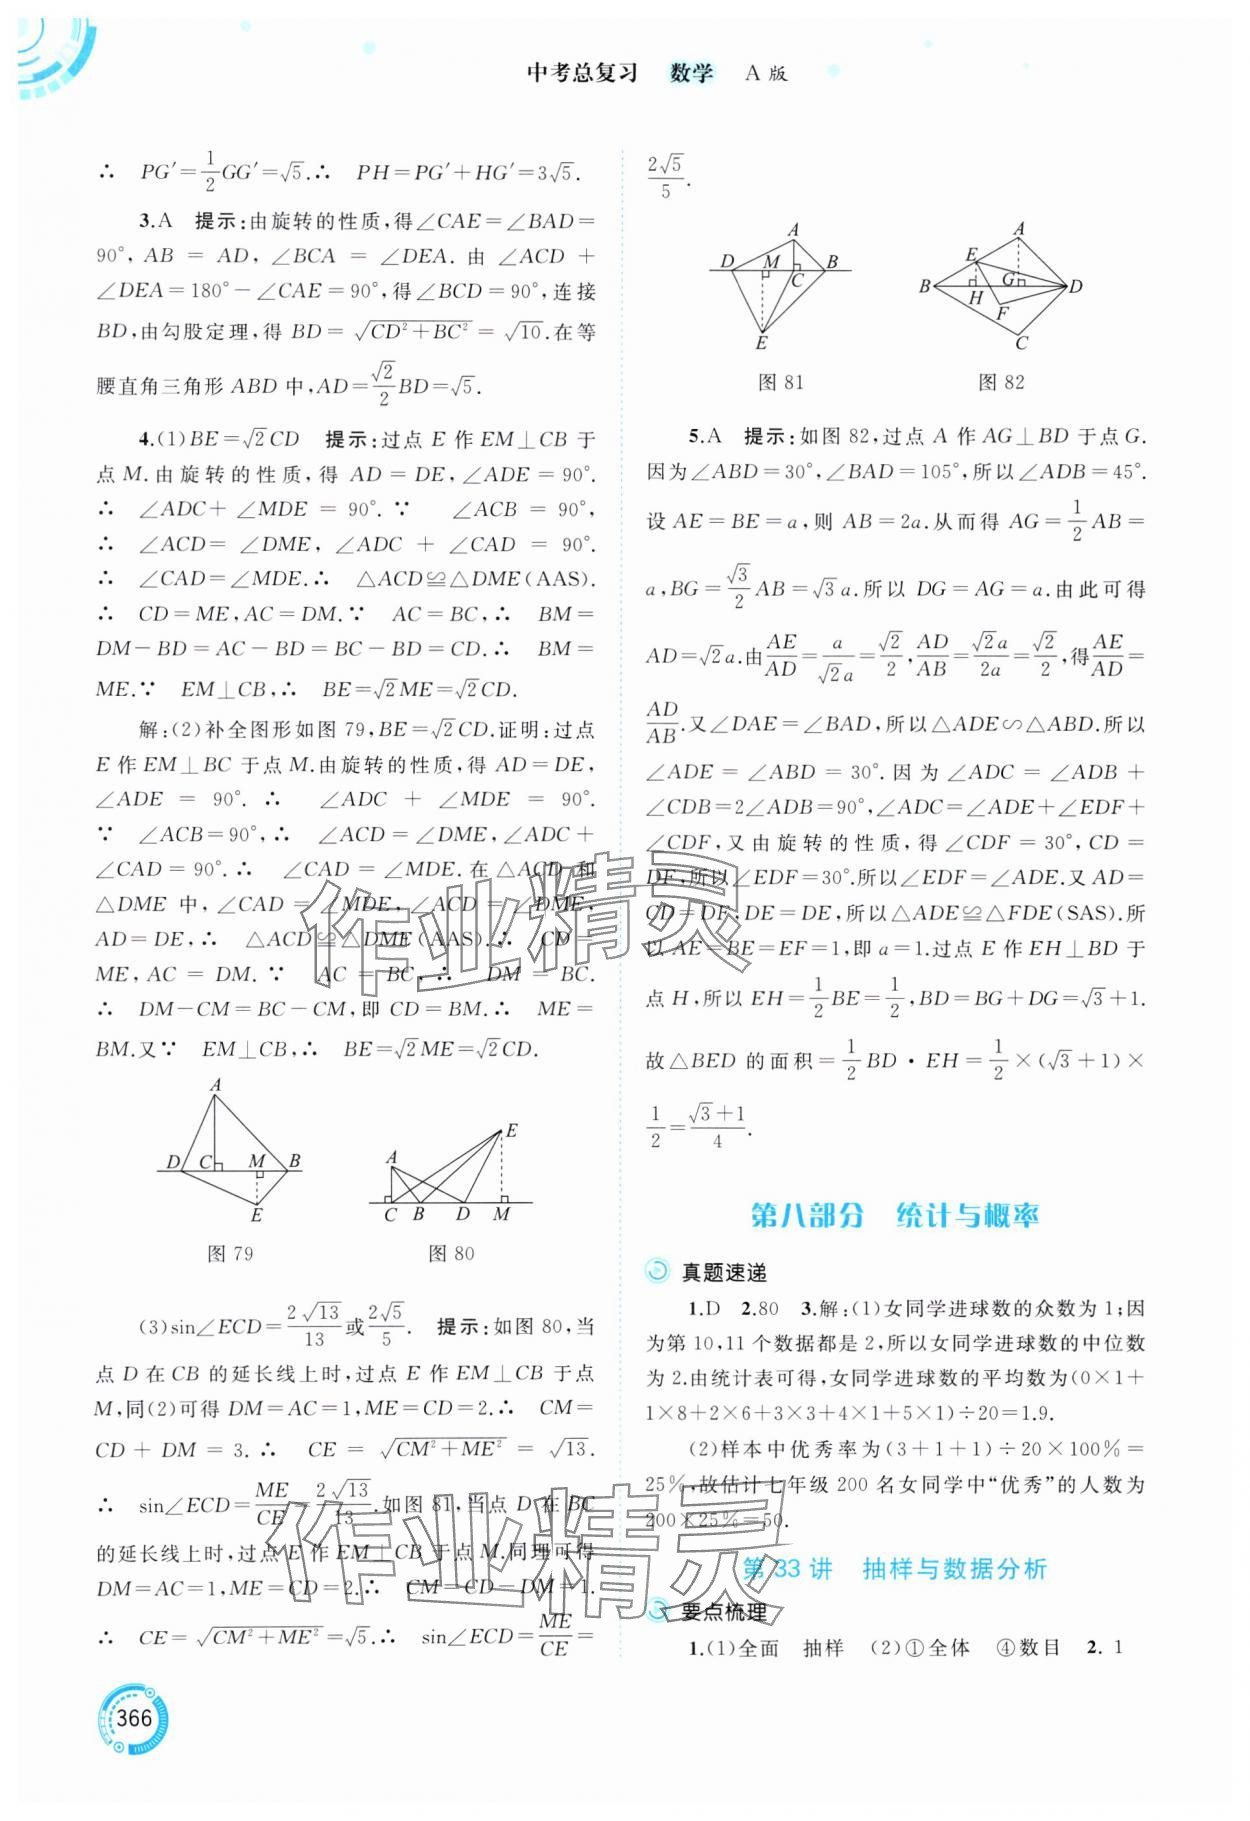 中考总复习 数学 A版
∴ PG′=1/2GG′=√5.∴ PH=PG′+HG′=3√5.
3.A 提示:由旋转的性质,得∠CAE=∠BAD=
90°, AB = AD, ∠BCA = ∠DEA. 由 ∠ACD +
∠DEA=180°-∠CAE=90°,得∠BCD=90°,连接
BD,由勾股定理,得 BD= √(CD²+BC²) = √10.在等
腰直角三角形 ABD 中,AD=√2/2BD=√5.
4.(1)BE=√2CD 提示:过点 E 作 EM⊥CB 于
点 M.由旋转的性质,得 AD=DE,∠ADE=90°.
∴ ∠ADC+ ∠MDE = 90°. ∵ ∠ACB = 90°,
∴ ∠ACD= ∠DME, ∠ADC + ∠CAD = 90°.
∴ ∠CAD=∠MDE.∴ △ACD≌△DME(AAS).
∴ CD=ME,AC=DM.∵ AC=BC,∴ BM=
DM-BD=AC-BD=BC-BD=CD.∴ BM=
ME.∵ EM⊥CB,∴ BE=√2ME=√2CD.
解:(2)补全图形如图 79,BE=√2CD.证明:过点
E 作 EM⊥BC 于点 M.由旋转的性质,得 AD=DE,
∠ADE = 90°. ∴ ∠ADC + ∠MDE = 90°.
∵ ∠ACB=90°,∴ ∠ACD=∠DME,∠ADC+
∠CAD=90°.∴ ∠CAD=∠MDE.在△ACD 和
△DME 中,∠CAD=∠MDE,∠ACD=∠DME,
AD=DE,∴ △ACD≌△DME(AAS).∴ CD=
ME, AC = DM. ∵ AC = BC, ∴ DM = BC.
∴ DM-CM=BC-CM,即 CD=BM.∴ ME=
BM.又∵ EM⊥CB,∴ BE=√2ME=√2CD.
A
D C M B
E
图 79
E
A
C B D M
图 80
(3)sin∠ECD=2√13/13或2√5/5. 提示:如图 80,当
点 D 在 CB 的延长线上时,过点 E 作 EM⊥CB 于点
M,同(2)可得 DM=AC=1,ME=CD=2.∴ CM=
CD + DM = 3. ∴ CE = √(CM²+ME²) = √13.
∴ sin∠ECD=ME/CE=2√13/13.如图 81,当点 D 在 BC
的延长线上时,过点 E 作 EM⊥CB 于点 M.同理可得
DM=AC=1,ME=CD=2.∴ CM=CD-DM=1.
∴ CE=√(CM²+ME²)=√5.∴ sin∠ECD=ME/CE=
366
2√5/5.
A
D M B
C
E
图 81
A
E
B H G D
F
C
图 82
5.A 提示:如图 82,过点 A 作 AG⊥BD 于点 G.
因为∠ABD=30°,∠BAD=105°,所以∠ADB=45°.
设 AE=BE=a,则 AB=2a.从而得 AG=1/2AB=
a,BG=√3/2AB=√3a.所以 DG=AG=a.由此可得
AD=√2a.由AE/AD=a/√2a=√2/2,AD/AB=√2a/2a=√2/2,得AE/AD=
AD/AB.又∠DAE=∠BAD,所以△ADE∽△ABD.所以
∠ADE = ∠ABD = 30°. 因 为 ∠ADC = ∠ADB +
∠CDB=2∠ADB=90°,∠ADC=∠ADE+∠EDF+
∠CDF,又由旋转的性质,得∠CDF=30°,CD=
DF,所以∠EDF=30°.所以∠EDF=∠ADE.又 AD=
CD=DF,DE=DE,所以△ADE≌△FDE(SAS).所
以 AE=BE=EF=1,即 a=1.过点 E 作 EH⊥BD 于
点 H,所以 EH=1/2BE=1/2,BD=BG+DG=√3+1.
故△BED 的面积=1/2BD·EH=1/2×(√3+1)×
1/2=(√3+1)/4.
第八部分 统计与概率
真题速递
1.D 2.80 3.解:(1)女同学进球数的众数为 1;因
为第 10,11 个数据都是 2,所以女同学进球数的中位数
为 2.由统计表可得,女同学进球数的平均数为(0×1+
1×8+2×6+3×3+4×1+5×1)÷20=1.9.
(2)样本中优秀率为(3+1+1)÷20×100%=
25%,故估计七年级 200 名女同学中“优秀”的人数为
200×25%=50.
第 33 讲 抽样与数据分析
要点梳理
1.(1)全面 抽样 (2)①全体 ④数目 2. 1
作业精灵
作业精灵